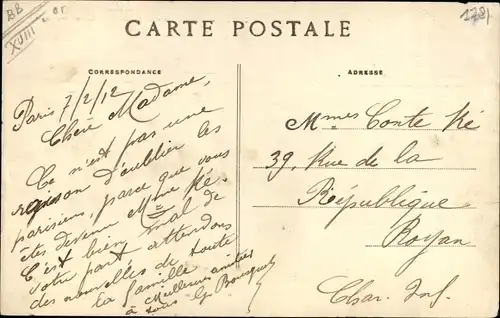 BB
XVIII
or
178
CARTE POSTALE
CORRESPONDANCE
ADRESSE
Paris 7/2/12
Chère Madame,
Ce n'est pas une
raison d'oublier les
parisiens, parce que vous
êtes devenu Mme Ké.
C'est bien mal de
votre part attendons
des nouvelles de toute
la famille
Meilleures amitiés
à tous
Bousquet
Mmes Conte Ké
39, Rue de la
République
Royan
Char. Inf.